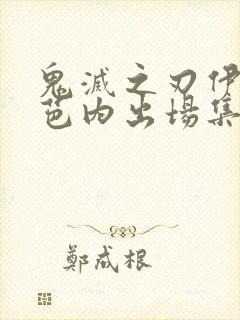 鬼滅之刃伊
芭内出場集
鄭成根